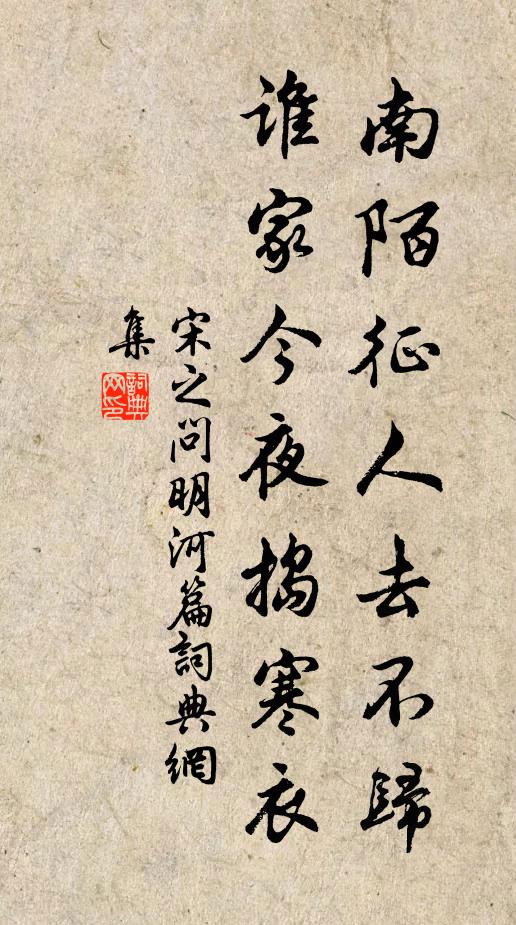 南陌征人去不歸
誰家今夜搗寒衣
宋之問明河篇詞典網
集
詞典
网印